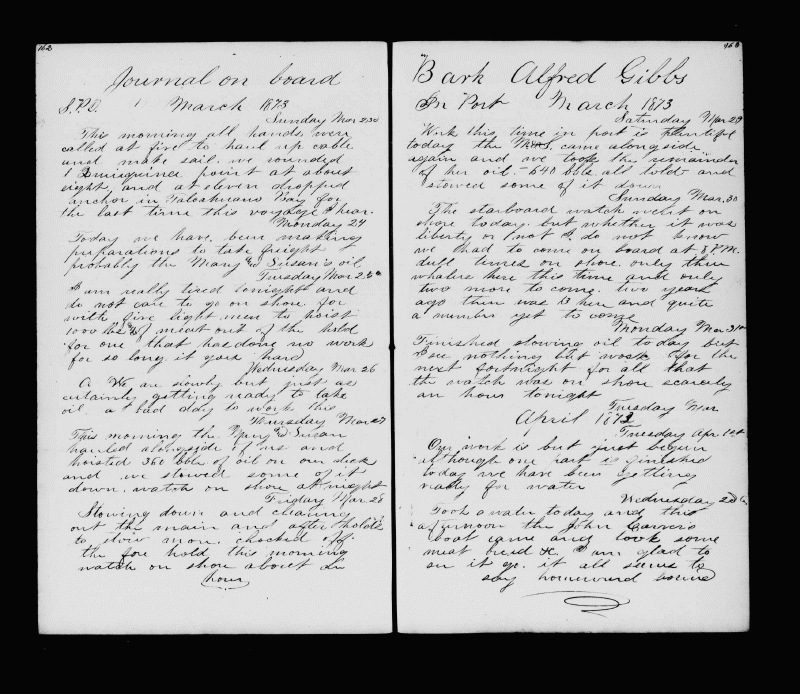 162
Journal on board
S.P.D. March 1873
Sunday Mar 23d
This morning all hands were
called at five to haul up cable
and make sail. we rounded
point at about
eight, and at eleven dropped
anchor in Talcahuano Bay for
the last time this voyage I hear.
Monday 24
Today we have been making
preparations to take freight
probably the Mary & Susan's oil
Tuesday Mar. 25th
I am really tired tonight and
do not care to go on shore. for
with five light men to hoist
1000 lbs of meat out of the hold
for one that has done no work
for so long it goes hard
Wednesday Mar. 26
We are slowly but just as
certainly getting ready to take
oil. a bad day to work this
Thursday Mar 27
This morning the Mary & Susan
hauled alongside of us and
hoisted 360 bbls of oil on our deck
and we stowed some of it
down. watch on shore at night
Friday Mar. 28
Stowing down and cleaning
out the main and after holds
to stow more. chocked off
the fore hold this morning
watch on shore about an
hour
163
Bark Alfred Gibbs
In Port March 1873
Saturday Mar 29
Work this time in port is plentiful
today the M&S came alongside
again and we took the remainder
of her oil. - 640 bbls all told - and
stowed some of it down
Sunday Mar. 30
The starboard watch went on
shore today. but whether it was
liberty or not I do not know
we had to come on board at 8 P.M.
dull times on shore. only three
whalers here this time and only
two more to come. two years
ago there was 13 here and quite
a number yet to come
Monday Mar 31st
Finished stowing oil today but
I see nothing but work for the
next fortnight for all that
the watch was on shore scarcely
an hour tonight
Tuesday Mar
April 1873
Tuesday Apr. 1st
Our work is but just begun
although one part is finished
today we have been getting
ready for water
Wednesday 2d
Took a water today and this
afternoon the John Carver's
boat came and took some
meat bread &c. I am glad to
see it go. it all seems to
say homeward bound